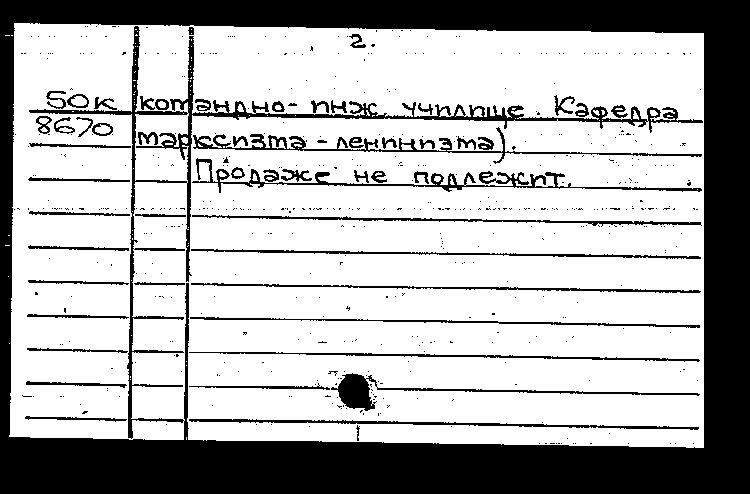 2.
50к командно-инж. училище. Кафедра
8670 марксизма-ленинизма).
Продаже не подлежит.